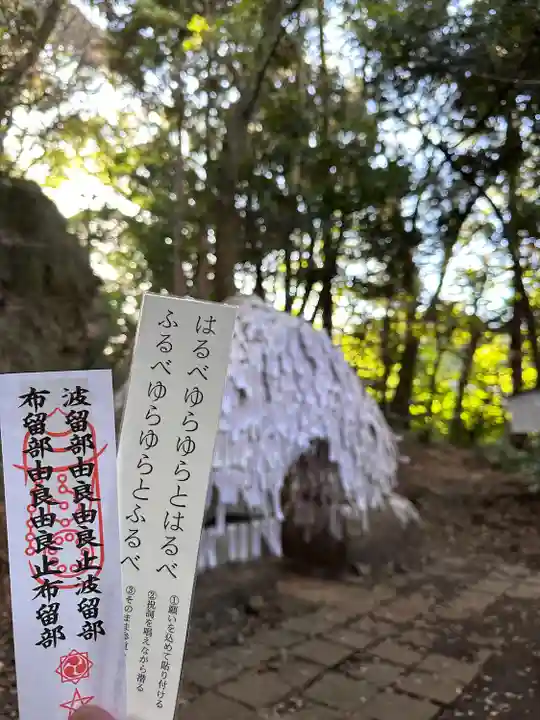 はるべゆらゆらとはるべ
ふるべゆらゆらとふるべ
①願いを込めて貼り付ける
②祝詞を唱えながら潜る
③そのまま
波留部由良由良止波留部
布留部由良由良止布留部